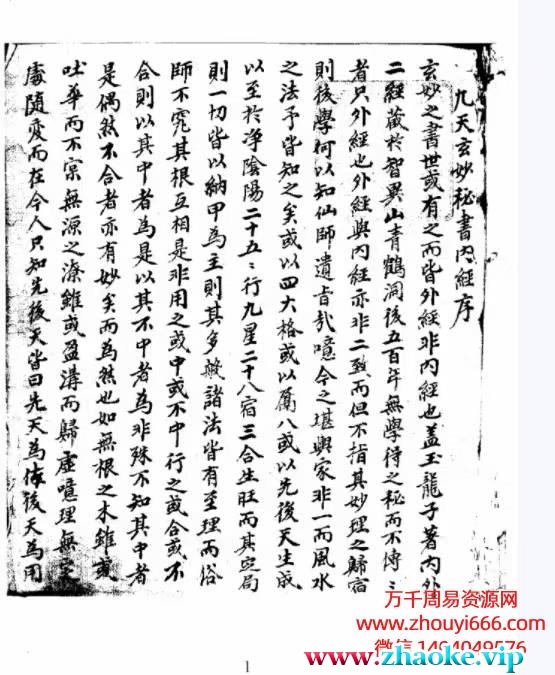 九天玄妙秘書內經序
玄妙之書世或有之而皆外經非內經也盖玉龍子著內外
二經藏於智異山青鶴洞後五百年無學得之秘而不傳〻
者只外經也外經與內經亦非二致而但不指其妙理之歸宿
則後學何以知仙師遺旨哉噫今之堪輿家非一而風水
之法予皆知之矣或以四大格或以属八或以先後天生成
以至於净陰陽二十五〻行九星二十八宿三合生旺而其定局
則一切皆以納甲為主則其多般諸法皆有至理而俗
師不究其根互相是非用之或中或不中行之或合或不
合則以其中者為是以其不中者為非殊不知其中者
是偶然不合者亦有妙矣而為然也如無根之木雖或
吐華而不宗無源之滌雖或盈溝而歸虛噫理無定
處隨愛而在今人只知先後天皆曰先天為体後天為用
万千周易资源网
www.zhouyi666.com
微信1494049576
www.zhaoke.vip
1